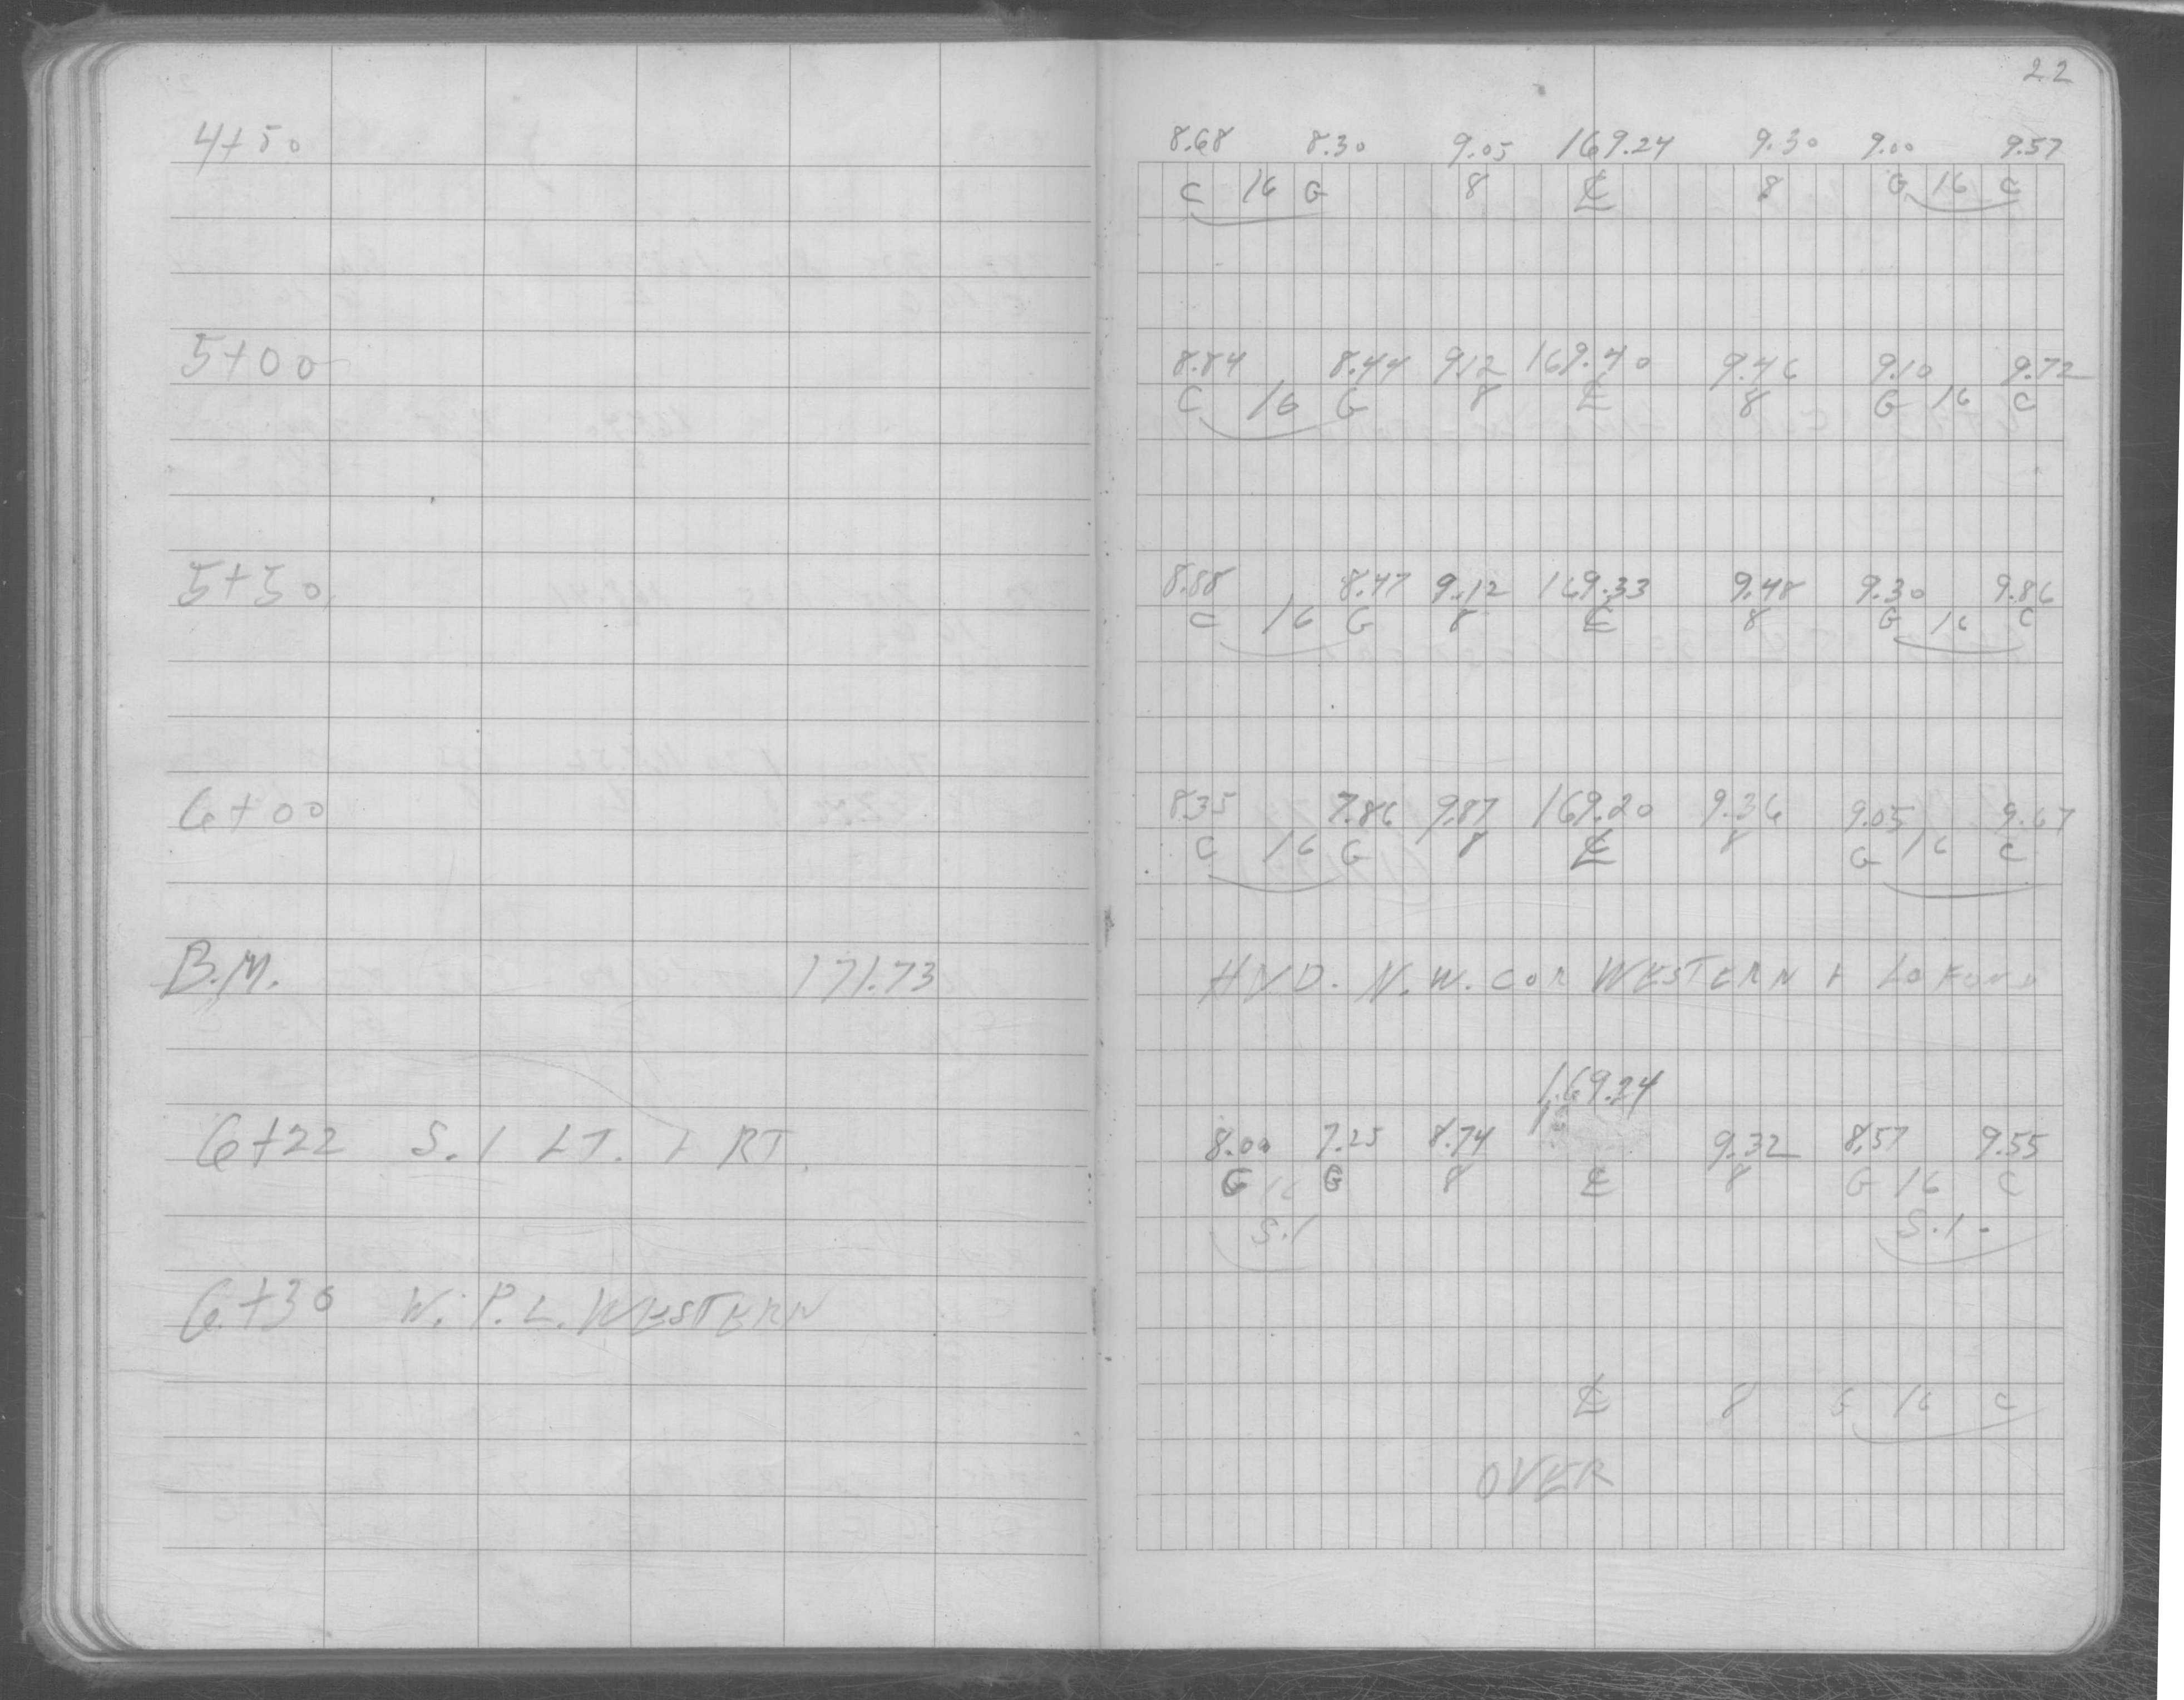 22
4+50 8.68 8.30 9.05 169.24 9.30 9.00 9.57
C 16 G 8 ℄ 8 G 16 C
5+00 8.84 8.44 9.12 169.40 9.46 9.10 9.72
C 16 G 8 ℄ 8 G 16 C
5+50 8.88 8.47 9.12 169.33 9.48 9.30 9.86
C 16 G 8 ℄ 8 G 16 C
6+00 8.35 7.86 9.87 169.20 9.36 9.05 9.67
C 16 G 8 ℄ 8 G 16 C
B.M. 171.73 HYD. N.W. COR WESTERN +
169.24
6+22 S.I LT. + RT. 8.00 7.25 8.74 9.32 8.57 9.55
G 16 G 8 ℄ 8 G 16 C
S.I S.I.
6+30 W. P.L. WESTERN
℄ 8 G 16 C
OVER